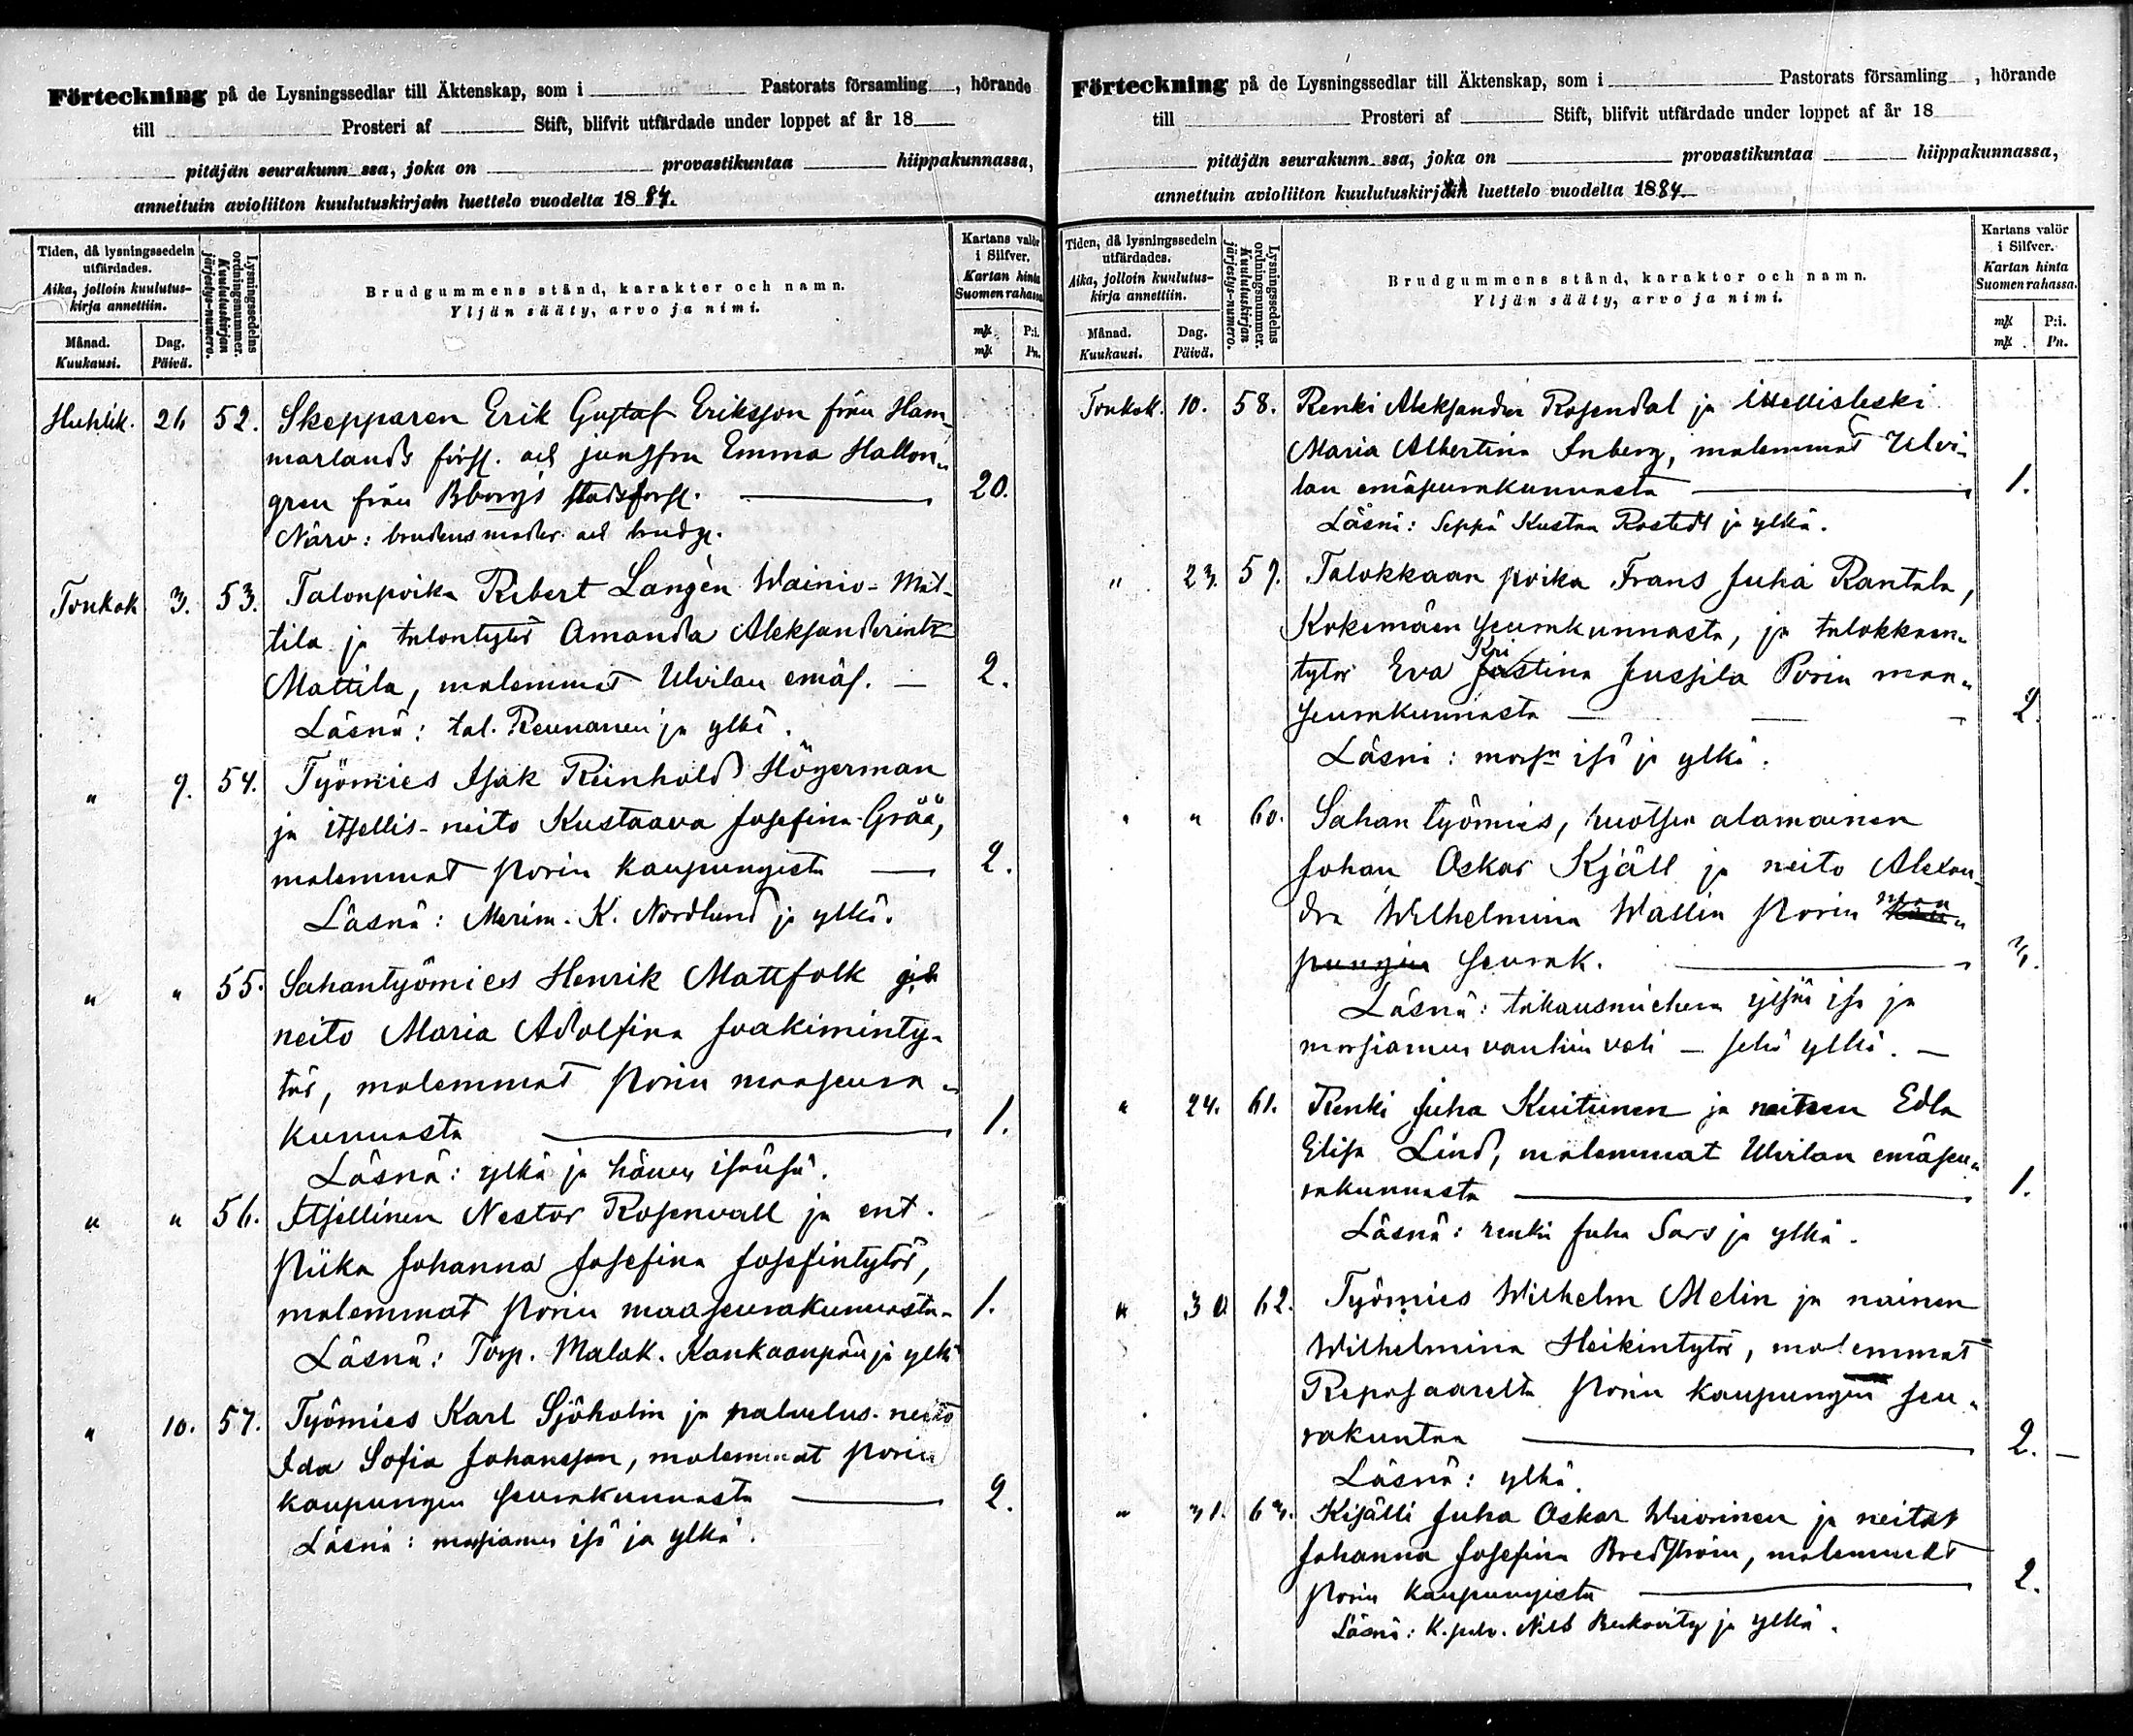 Förteckning på de Lysningssedlar till Äktenskap, som i Pastorats församling , hörande
till Prosteri af Stift, blifvit utfärdade under loppet af år 18
pitäjän seurakunn ssa, joka on provastikuntaa hiippakunnassa,
annettuin avioliiton kuulutuskirjain luettelo vuodelta 1884.
Tiden, då lysningssedeln utfärdades.
Aika, jolloin kuulutus-kirja annettiin.
Månad. Kuukausi.
Dag. Päivä.
Lysningssedelns ordningsnummer.
Kuulutuskirjan järjestys-numero.
Brudgummens stånd, karakter och namn.
Yljän sääty, arvo ja nimi.
Kartans valör i Silfver.
Kartan hinta Suomen rahassa.
mk P:i.
mk Pn.
Huhtik. 26 52. Skepparen Erik Gustaf Eriksson från Ham-
marlands förs. och jungfru Emma Hallon-
gren från Bborgs stadsförs. 20.
Närv: brudens moder och brudg.
Toukok 3. 53. Talonpoika Robert Langén Wainio-Mat-
tila ja talontytär Amanda Aleksanderint.
Mattila, molemmat Ulvilan emäs. — 2.
Läsnä: tal. Reunanen ja ylkä.
" 9. 54. Työmies Isak Reinhold Högerman
ja itsellis-neito Kustaava Josefina Grää,
molemmat Porin kaupungista — 2.
Läsnä: Merim. K. Nordlund ja ylkä.
" " 55. Sahantyömies Henrik Mattfolk ja
neito Maria Adolfina Joakiminty-
tär, molemmat Porin maaseura-
kunnasta — 1.
Läsnä: ylkä ja hänen isänsä.
" " 56. Itsellinen Nestor Rosenvall ja ent.
piika Johanna Josefina Josefintytär,
molemmat Porin maaseurakunnasta- 1.
Läsnä: Torp. Malak. Kankaanpää ja ylkä
" 10. 57. Työmies Karl Sjöholm ja palvelus-neito
Ida Sofia Johansson, molemmat Porin
kaupungin seurakunnasta — 2.
Läsnä: morsiamen isä ja ylkä.
Förteckning på de Lysningssedlar till Äktenskap, som i Pastorats församling , hörande
till Prosteri af Stift, blifvit utfärdade under loppet af år 18
pitäjän seurakunn ssa, joka on provastikuntaa hiippakunnassa,
annettuin avioliiton kuulutuskirjain luettelo vuodelta 1884.
Tiden, då lysningssedeln utfärdades.
Aika, jolloin kuulutus-kirja annettiin.
Månad. Kuukausi.
Dag. Päivä.
Lysningssedelns ordningsnummer.
Kuulutuskirjan järjestys-numero.
Brudgummens stånd, karakter och namn.
Yljän sääty, arvo ja nimi.
Kartans valör i Silfver.
Kartan hinta Suomen rahassa.
mk P:i.
mk Pn.
Toukok. 10. 58. Renki Aleksander Rosendal ja itsellisleski
Maria Albertina Inberg, molemmat Ulvi-
lan emäseurakunnasta — 1.
Läsnä: Seppä Kustaa Rostedt ja ylkä.
" 23. 59. Talokkaan poika Frans Juha Rantala,
Kokemäen seurakunnasta, ja talokkaan-
tytär Eva Kristina Jussila Porin maa-
seurakunnasta — 2.
Läsnä: mors:n isä ja ylkä.
" " 60. Sahan työmies, ruotsin alamainen
Johan Oskar Kjäll ja neito Alexan-
dra Wilhelmina Wallin Porin maa
seurak. — 3.
Läsnä: takausmiehenä yljän isä ja
morsiamen vanhin veli — sekä ylkä. —
" 24. 61. Renki Juha Kuitunen ja neitsen Edla
Elisa Lind, molemmat Ulvilan emäseu-
rakunnasta — 1.
Läsnä: renki Juha Sars ja ylkä.
" 30 62. Työmies Wilhelm Melin ja nainen
Wilhelmina Heikintytär, molemmat
Reposaarelta Porin kaupungin seu-
rakuntaa — 2. —
Läsnä: ylkä.
" 31. 63. Kisälli Juha Oskar Wuorinen ja neitsy
Johanna Josefina Bredström, molemmat
Porin kaupungista — 2.
Läsnä: K.palv. Nils Berkovity ja ylkä.